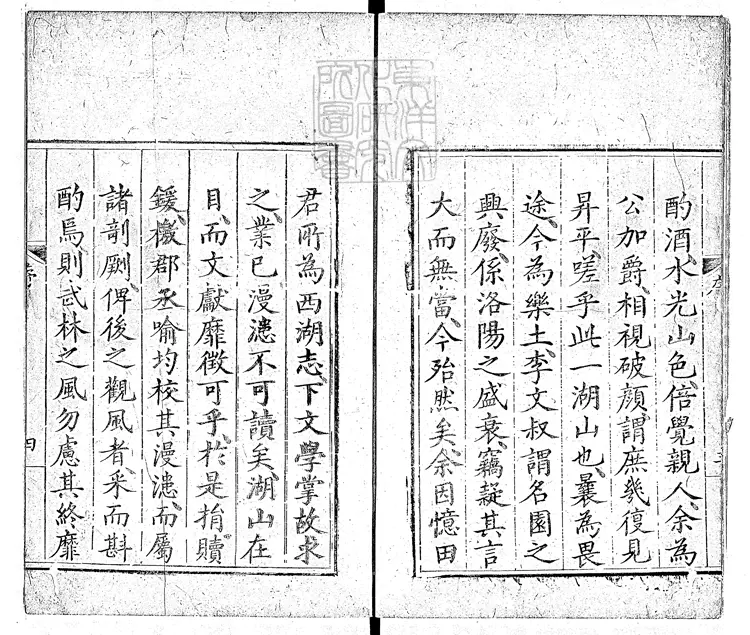 酌酒、水光山色、倍覺親人、余為
公加爵、相視破顏、謂庶幾復見
昇平、嗟乎此一湖山也、曩為畏
途、今為樂土、李文叔謂名園之
興廢、係洛陽之盛衰、竊疑其言
大而無當、今殆然矣、余因憶田
序
三
君所為西湖志、下文學掌故求
之、業已漫漶不可讀矣、湖山在
目、而文獻靡徵可乎、於是捐贖
鍰、檄郡丞喻均校其漫漶、而屬
諸剞劂、俾後之觀風者、采而斟
酌焉、則武林之風勿慮其終靡
序
四